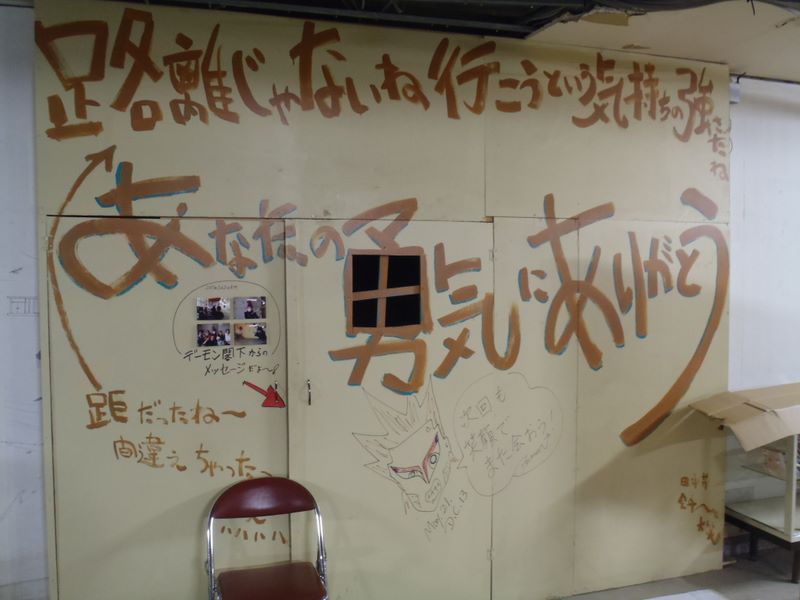 路離じゃないね行こうという気持ちの強さだね
あなたの勇気にありがとう
デーモン閣下からの
メッセージだよ〜
距だったね〜
間違えちゃった〜
ハハハハハ
次回も
笑顔で
また会おう!
May 21.
D.C.13